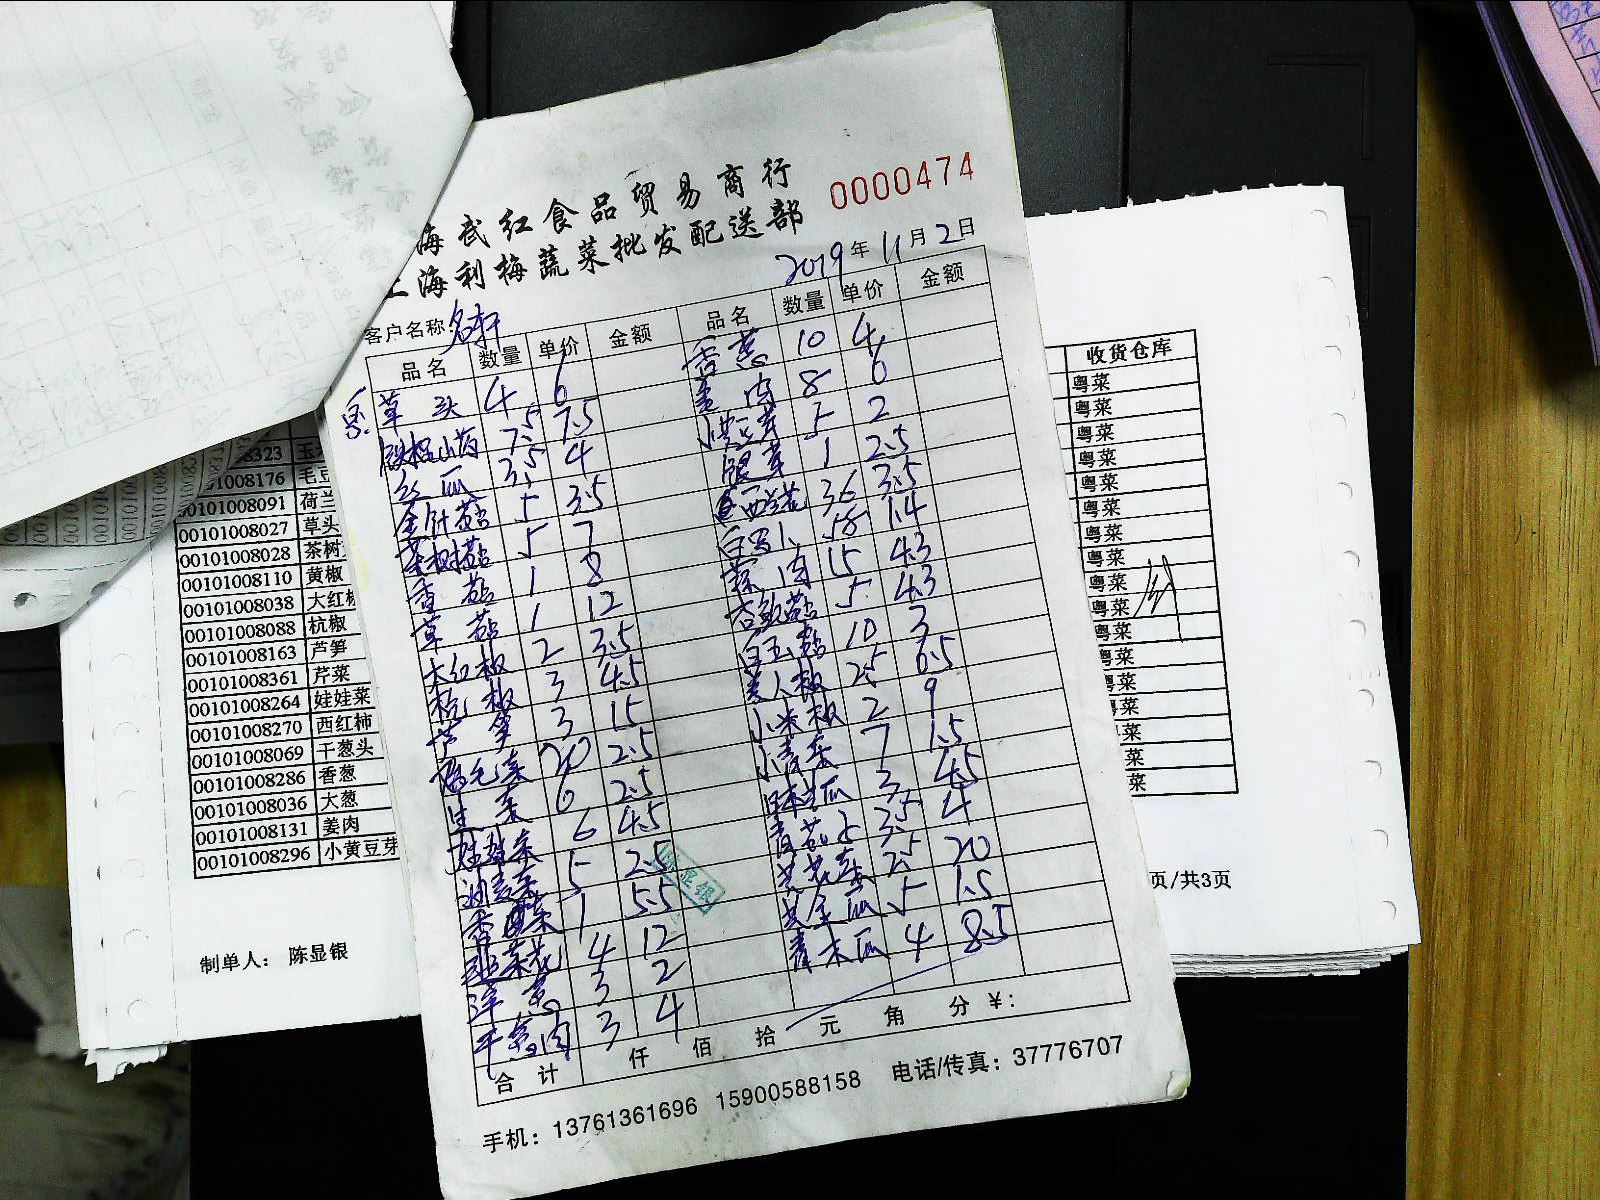 海武红食品贸易商行
上海利梅蔬菜批发配送部
0000474
2019年11月2日
客户名称:名轩
品名 数量 单价 金额 品名 数量 单价 金额
草头 4 6 香葱 10 4
铁棍山药 7.5 7.5 姜肉 8 6
丝瓜 3.5 4 小黄豆芽 5 2
金针菇 5 3.5 银芽 1 2.5
茶树菇 5 7 西兰花 36 3.5
香菇 1 8 白萝卜 58 1.4
草菇 1 12 蒜肉 15 4.3
大红椒 2 3.5 杏鲍菇 5 4.3
杭椒 3 4.5 白玉菇 10 3
芦笋 3 15 美人椒 25 6.5
鸡毛菜 20 2.5 小米椒 2 9
生菜 6 2.5 小青菜 7 1.5
娃娃菜 6 4.5 日本南瓜 3 4.5
油麦菜 5 2.5 青茄子 3.5 4
香菜 1 5.5 黄花菜 2.5 20
韭菜花 4 12 黄金瓜 5 1.5
洋葱 3 2 青木瓜 4 8.5
干葱肉 3 4
合计 仟 佰 拾 元 角 分 ¥:
手机: 13761361696 15900588158 电话/传真: 37776707
8323 玉
01008176 毛豆
01008091 荷兰
00101008027 草头
00101008028 茶树
00101008110 黄椒
00101008038 大红椒
00101008088 杭椒
00101008163 芦笋
00101008361 芹菜
00101008264 娃娃菜
00101008270 西红柿
00101008069 干葱头
00101008286 香葱
00101008036 大葱
00101008131 姜肉
00101008296 小黄豆芽
制单人: 陈显银
收货仓库
粤菜
粤菜
粤菜
粤菜
粤菜
粤菜
粤菜
粤菜
粤菜
粤菜
粤菜
粤菜
粤菜
粤菜
菜
菜
菜
页/共3页